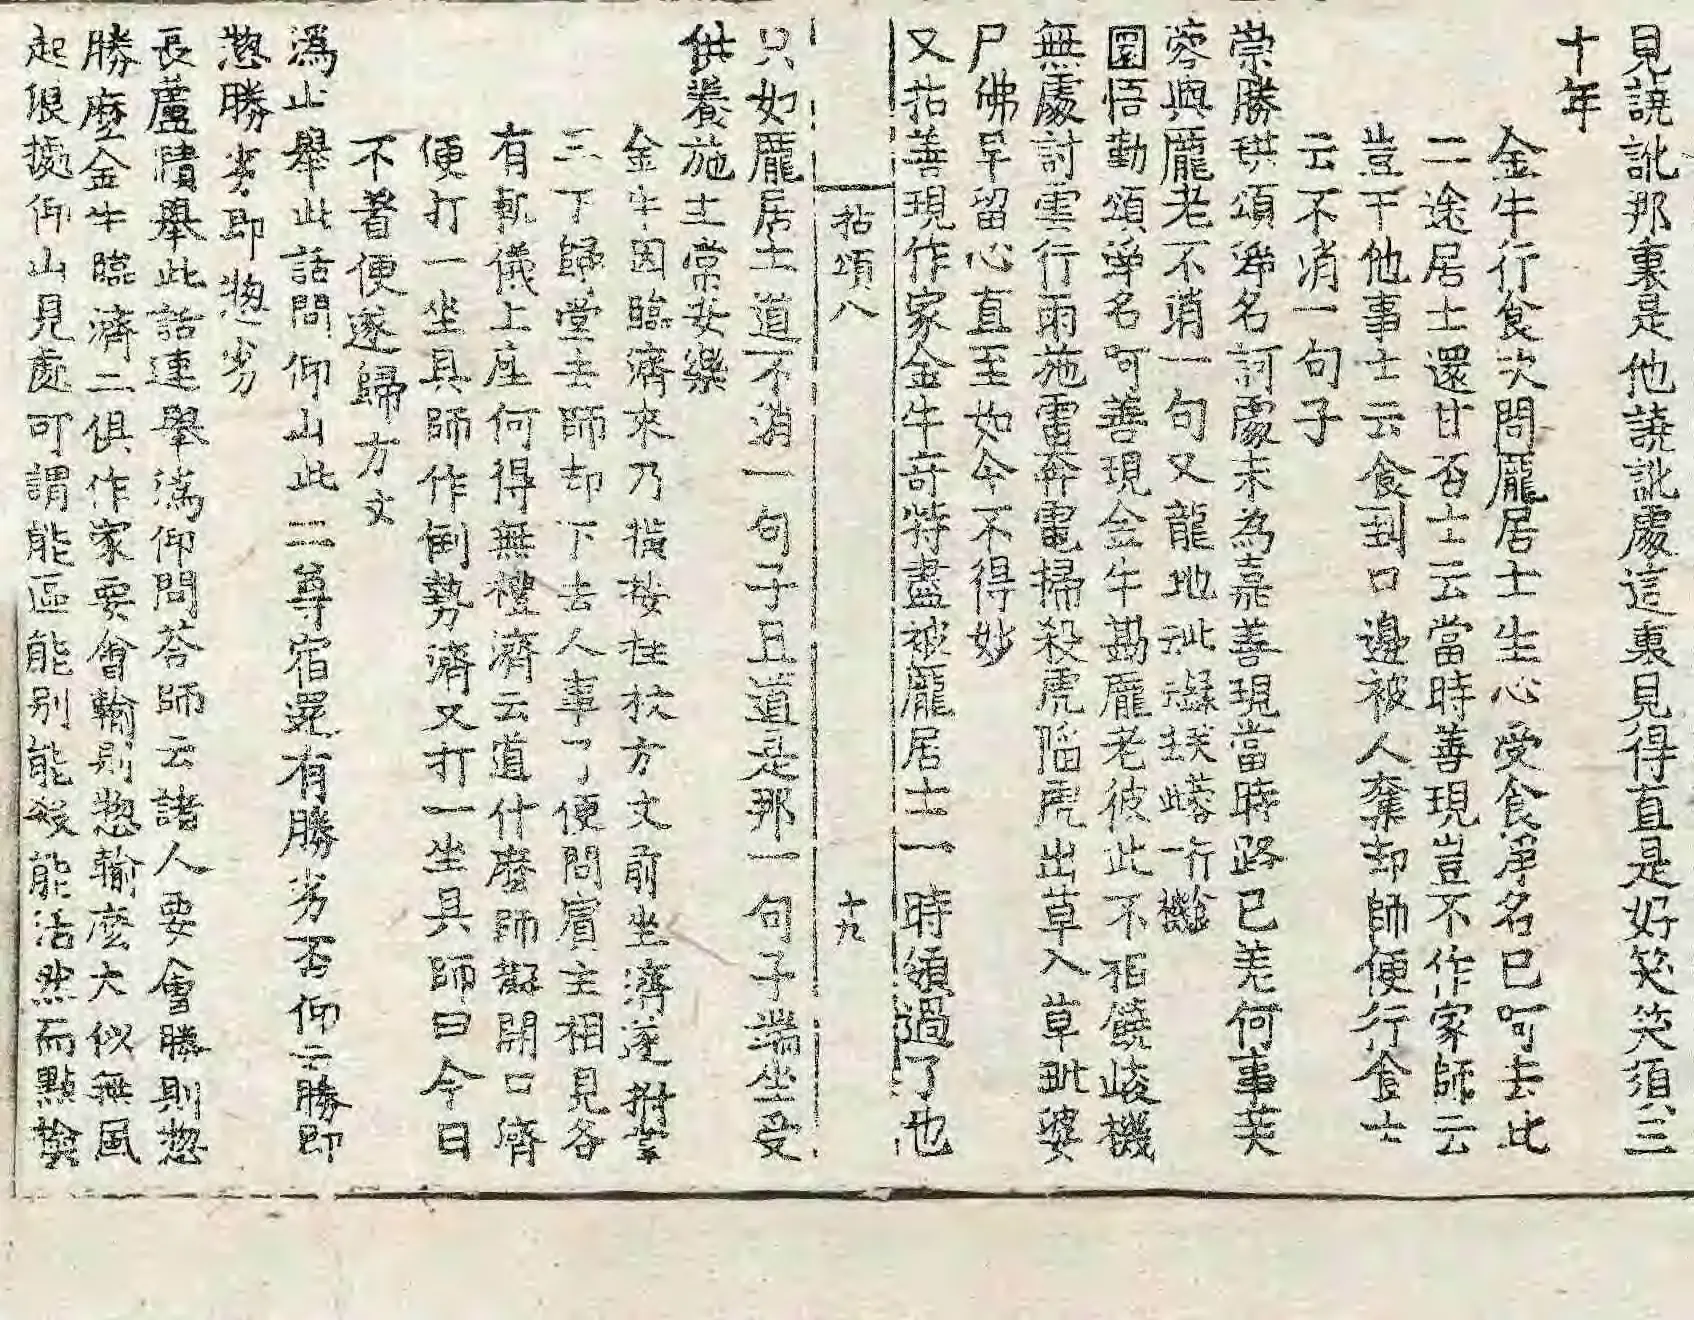 見譊訛那裏是他譊訛處這裏見得直是好笑笑須三
十年
金牛行食次問龐居士生心受食淨名已呵去此
二途居士還甘否士云當時善現豈不作家師云
豈干他事士云食到口邊被人奪却師便行食士
云不消一句子
崇勝珙頌淨名訶處未為嘉善現當時路已差何事芙
蓉與龐老不消一句又龍地
圜悟勤頌淨名呵善現金牛勘龐老彼此不相饒峻機
無處討雲行雨施雷奔電掃殺虎陷虎出草入草毗婆
尸佛早留心直至如今不得妙
又拈善現作家金牛奇特盡被龐居士一時領過了也
拈頌八 十九
只如龐居士道不消一句子且道是那一句子端坐受
供養施主常安樂
金牛因臨濟來乃橫按拄杖方丈前坐濟遂拊掌
三下歸堂去師却下去人事了便問賓主相見各
有軌儀上座何得無禮濟云道什麼師擬開口濟
便打一坐具師作倒勢濟又打一坐具師曰今日
不著便遂歸方丈
溈山舉此話問仰山此二尊宿還有勝劣否仰云勝即
惣勝劣即惣劣
長蘆賾舉此話連舉溈仰問荅師云諸人要會勝則惣
勝麼金牛臨濟二俱作家要會輸則惣輸麼大似無風
起浪據仰山見處可謂能區能別能殺能活然而點撿